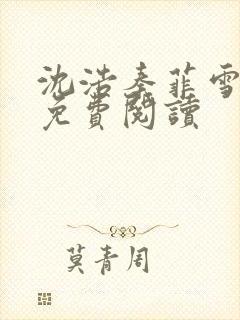 沈浩秦菲雪
免費閱讀
莫青周